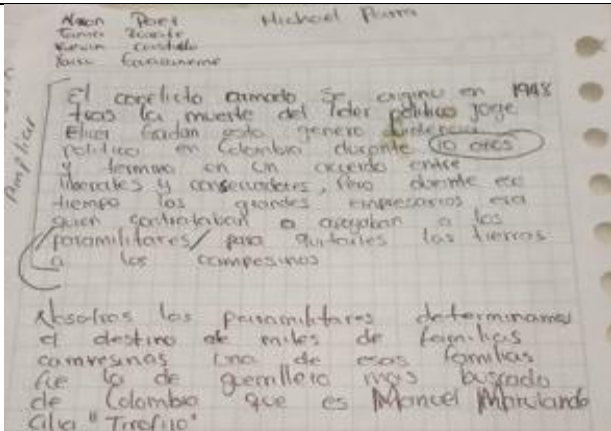 Michael Parra
Kevin
El conflicto armado se origino en 1948
tras la muerte del lider politico Jorge
Eliecer Gaitan esto genero violencia
politica en Colombia durante 10 años
y termino en un acuerdo entre
liberales y conservadores, Pero durante ese
tiempo los grandes empresarios era
quien contrataban o apoyaban a los
paramilitares/ para quitarles las tierras
a los campesinos
Ampliar
Nosotros los paramilitares determinamos
el destino de miles de familias
campesinas una de esas familias
fue la de guerrillero mas buscado
de Colombia que es Manuel Marulando
alias "Tirofijo"